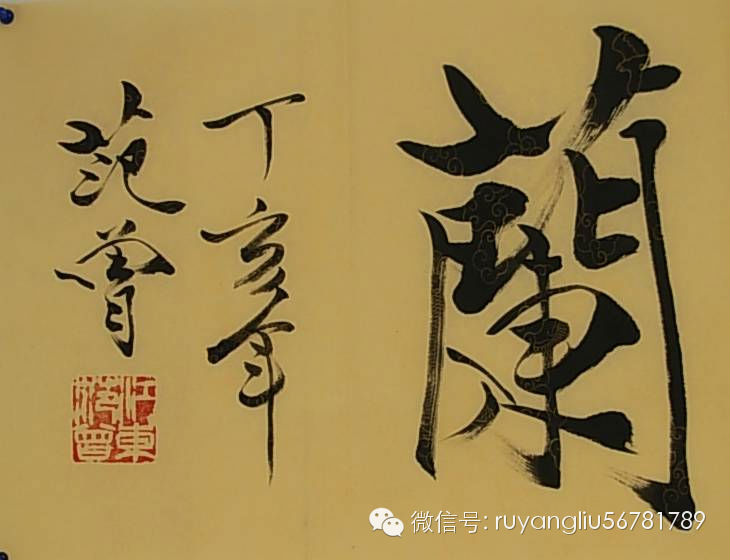 蘭
丁亥年
范曾
江東
范曾
微信号: ruyangliu56781789